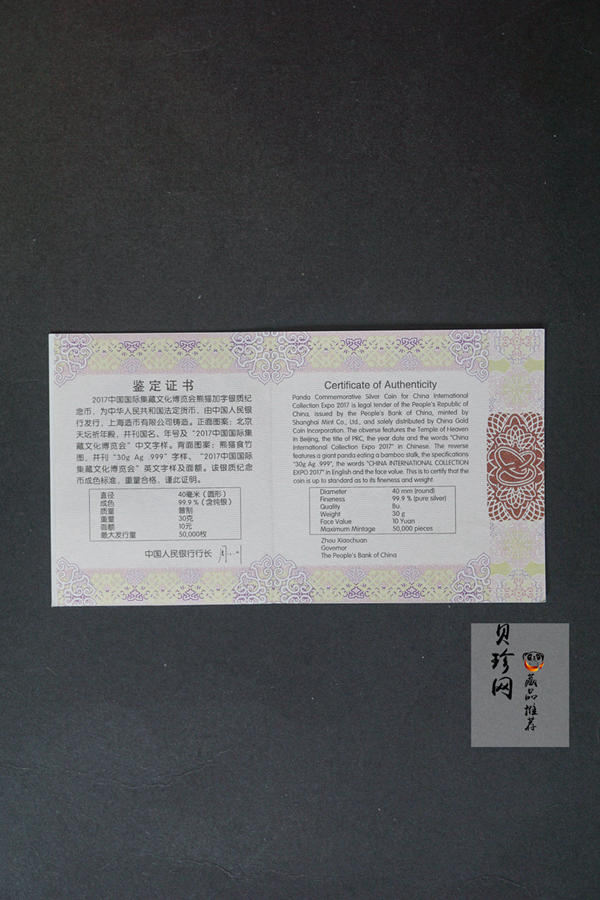 鉴定证书
2017中国国际集藏文化博览会熊猫加字银质纪
念币，为中华人民共和国法定货币，由中国人民银
行发行，上海造币有限公司铸造。正面图案：北京
天坛祈年殿，并刊国名、年号及“2017中国国际集
藏文化博览会”中文字样。背面图案：熊猫食竹
图，并刊“30g Ag .999”字样、“2017中国国际
集藏文化博览会”英文字样及面额。该银质纪
念币成色标准，重量合格，谨此证明。
直径 40毫米（圆形）
成色 99.9％（含纯银）
质量 普制
重量 30克
面额 10元
最大发行量 50,000枚
中国人民银行行长
Certificate of Authenticity
Panda Commemorative Silver Coin for China International
Collection Expo 2017 is legal tender of the People's Republic of
China, issued by the People's Bank of China, minted by
Shanghai Mint Co., Ltd., and solely distributed by China Gold
Coin Incorporation. The obverse features the Temple of Heaven
in Beijing, the title of PRC, the year date and the words "China
International Collection Expo 2017" in Chinese. The reverse
features a giant panda eating a bamboo stalk, the specifications
"30g Ag .999", the words "CHINA INTERNATIONAL COLLECTION
EXPO 2017" in English and the face value. This is to certify that the
coin is up to standard as to its fineness and weight.
Diameter 40 mm (round)
Fineness 99.9 % (pure silver)
Quality Bu.
Weight 30 g
Face Value 10 Yuan
Maximum Mintage 50,000 pieces
Zhou Xiaochuan
Governor
The People's Bank of China
贝珍网
藏品推荐